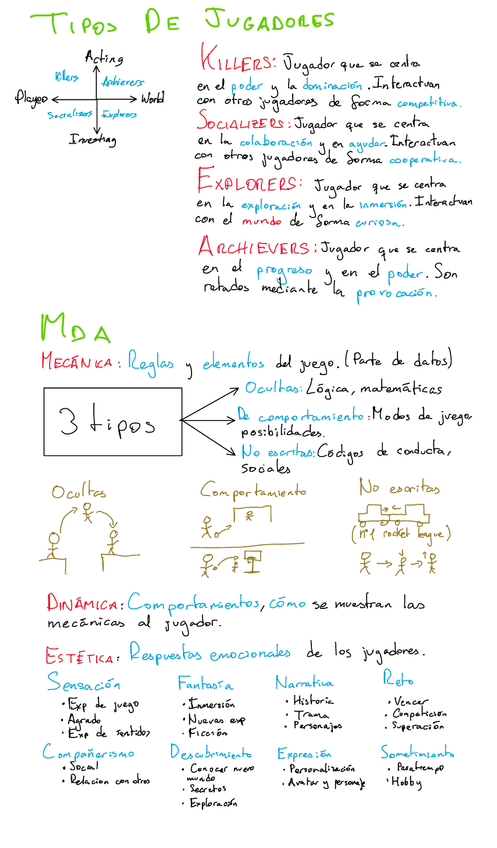 TIPOS DE JUGADORES
Acting
Killers Achievers
Player World
Socializers Explorers
KILLERS: Jugador que se centra
en el poder y la dominación. Interactuan
con otros jugadores de forma competitiva.
SOCIALIZERS: Jugador que se centra
en la colaboración y en ayudar. Interactuan
con otros jugadores de forma cooperativa.
EXPLORERS: Jugador que se centra
en la exploración y en la inmersión. Interactuan
con el mundo de forma curiosa.
ARCHIEVERS: Jugador que se centra
en el progreso y en el poder. Son
retados mediante la provocación.
MDA
MECÁNICA: Reglas y elementos del juego. (Parte de datos)
3 tipos
Ocultas: Lógica, matemáticas
De comportamiento: Modos de juego,
posibilidades.
No escritas: Códigos de conducta,
sociales
Ocultas Comportamiento No escritas
(nº1 rocket league)
DINÁMICA: Comportamientos, cómo se muestran las
mecánicas al jugador.
ESTÉTICA: Respuestas emocionales de los jugadores.
Sensación Fantasía Narrativa Reto
• Exp de juego • Inmersión • Historia • Vencer
• Agrado • Nuevas exp • Trama • Competicion
• Exp de sentidos • Ficción • Personajes • Superación
Compañerismo Descubrimiento Expresión Sometimiento
• Social • Conocer nuevo • Personalización • Pasatiempo
• Relacion con otros mundo • Avatar y personaje • Hobby
• Secretos
• Exploración